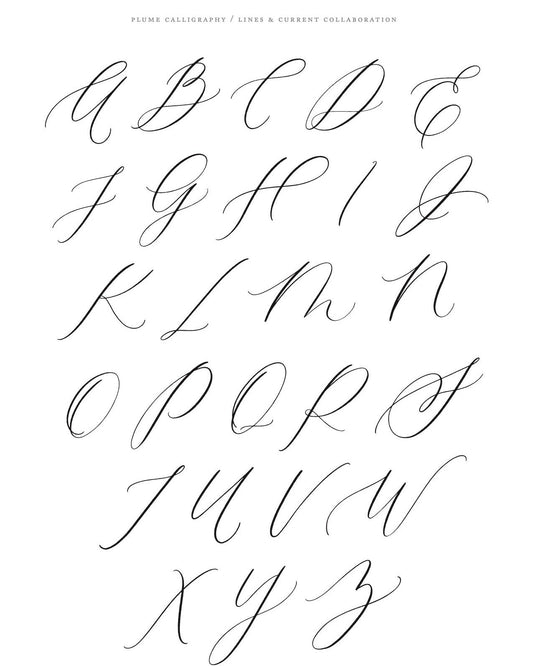 PLUME CALLIGRAPHY / LINES & CURRENT COLLABORATION
A B C D E
F G H I J
K L M N
O P Q R S
T U V W
X Y Z